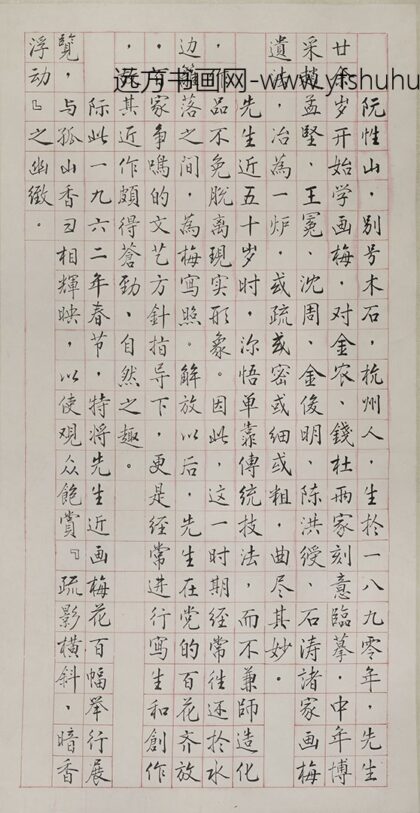 阮性山，别号木石，杭州人，生於一八九零年，先生
廿余岁开始学画梅，对金农、錢杜两家刻意臨摹，中年博
采趙孟堅、王冕、沈周、金俊明、陈洪绶、石涛諸家画梅
遺法，冶為一炉，或疏或密或细或粗，曲尽其妙。
先生近五十岁时，深悟单靠傳統技法，而不兼師造化
，作品不免脱离現实形象。因此，这一时期经常往还於水
边篱落之间，為梅寫照。解放以后，先生在党的百花齐放
，百家争鳴的文艺方針指导下，更是经常进行寫生和創作
，其近作頗得蒼勁、自然之趣。
际此一九六二年春节，特将先生近画梅花百幅举行展
覽，与孤山香雪相輝映，以使观众飽賞『疏影橫斜，暗香
浮动』之幽緻。
远方书画网-www.yishuhu